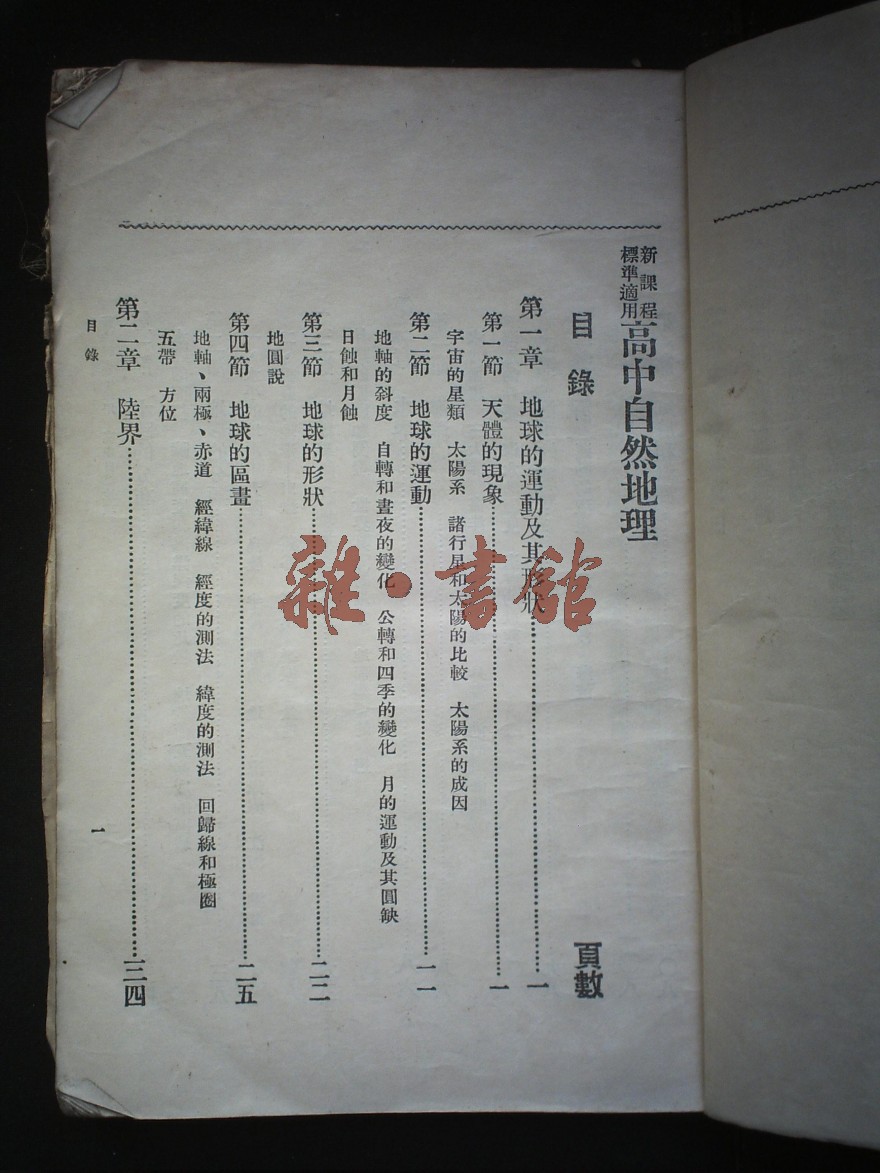 新課程標準適用高中自然地理
目錄 頁數
第一章 地球的運動及其形狀……一
第一節 天體的現象……一
宇宙的星類 太陽系 諸行星和太陽的比較 太陽系的成因
第二節 地球的運動……一一
地軸的斜度 自轉和晝夜的變化 公轉和四季的變化 月的運動及其圓缺
日蝕和月蝕
第三節 地球的形狀……二二
地圓說
第四節 地球的區畫……二五
地軸、兩極、赤道 經緯線 經度的測法 緯度的測法 回歸線和極圈
五帶 方位
第二章 陸界……三四
目錄 一
雜·書館